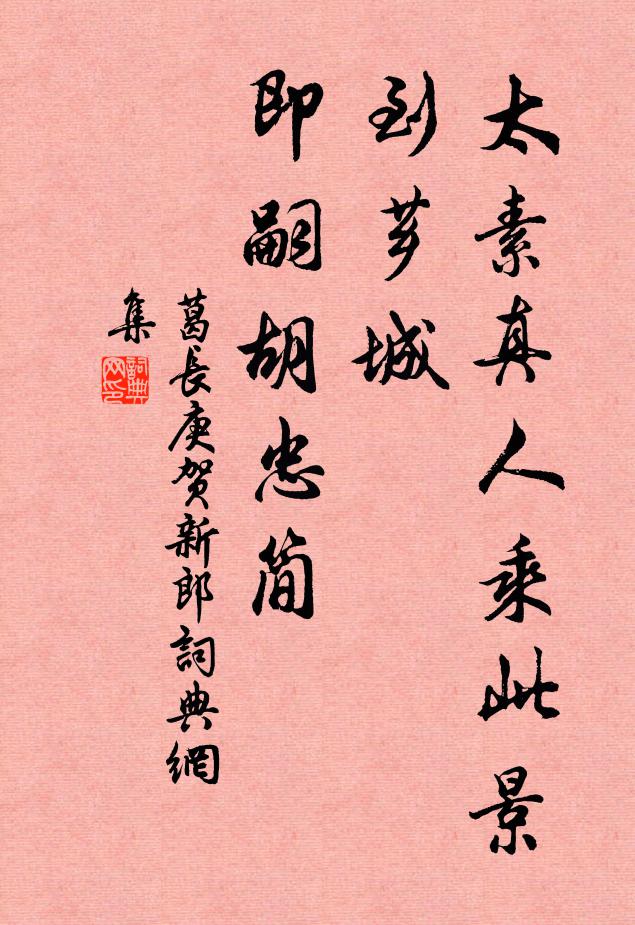 太素真人乘此景
到芗城
即嗣胡忠简
葛長庚賀新郎詞典網
集
詞典
网印